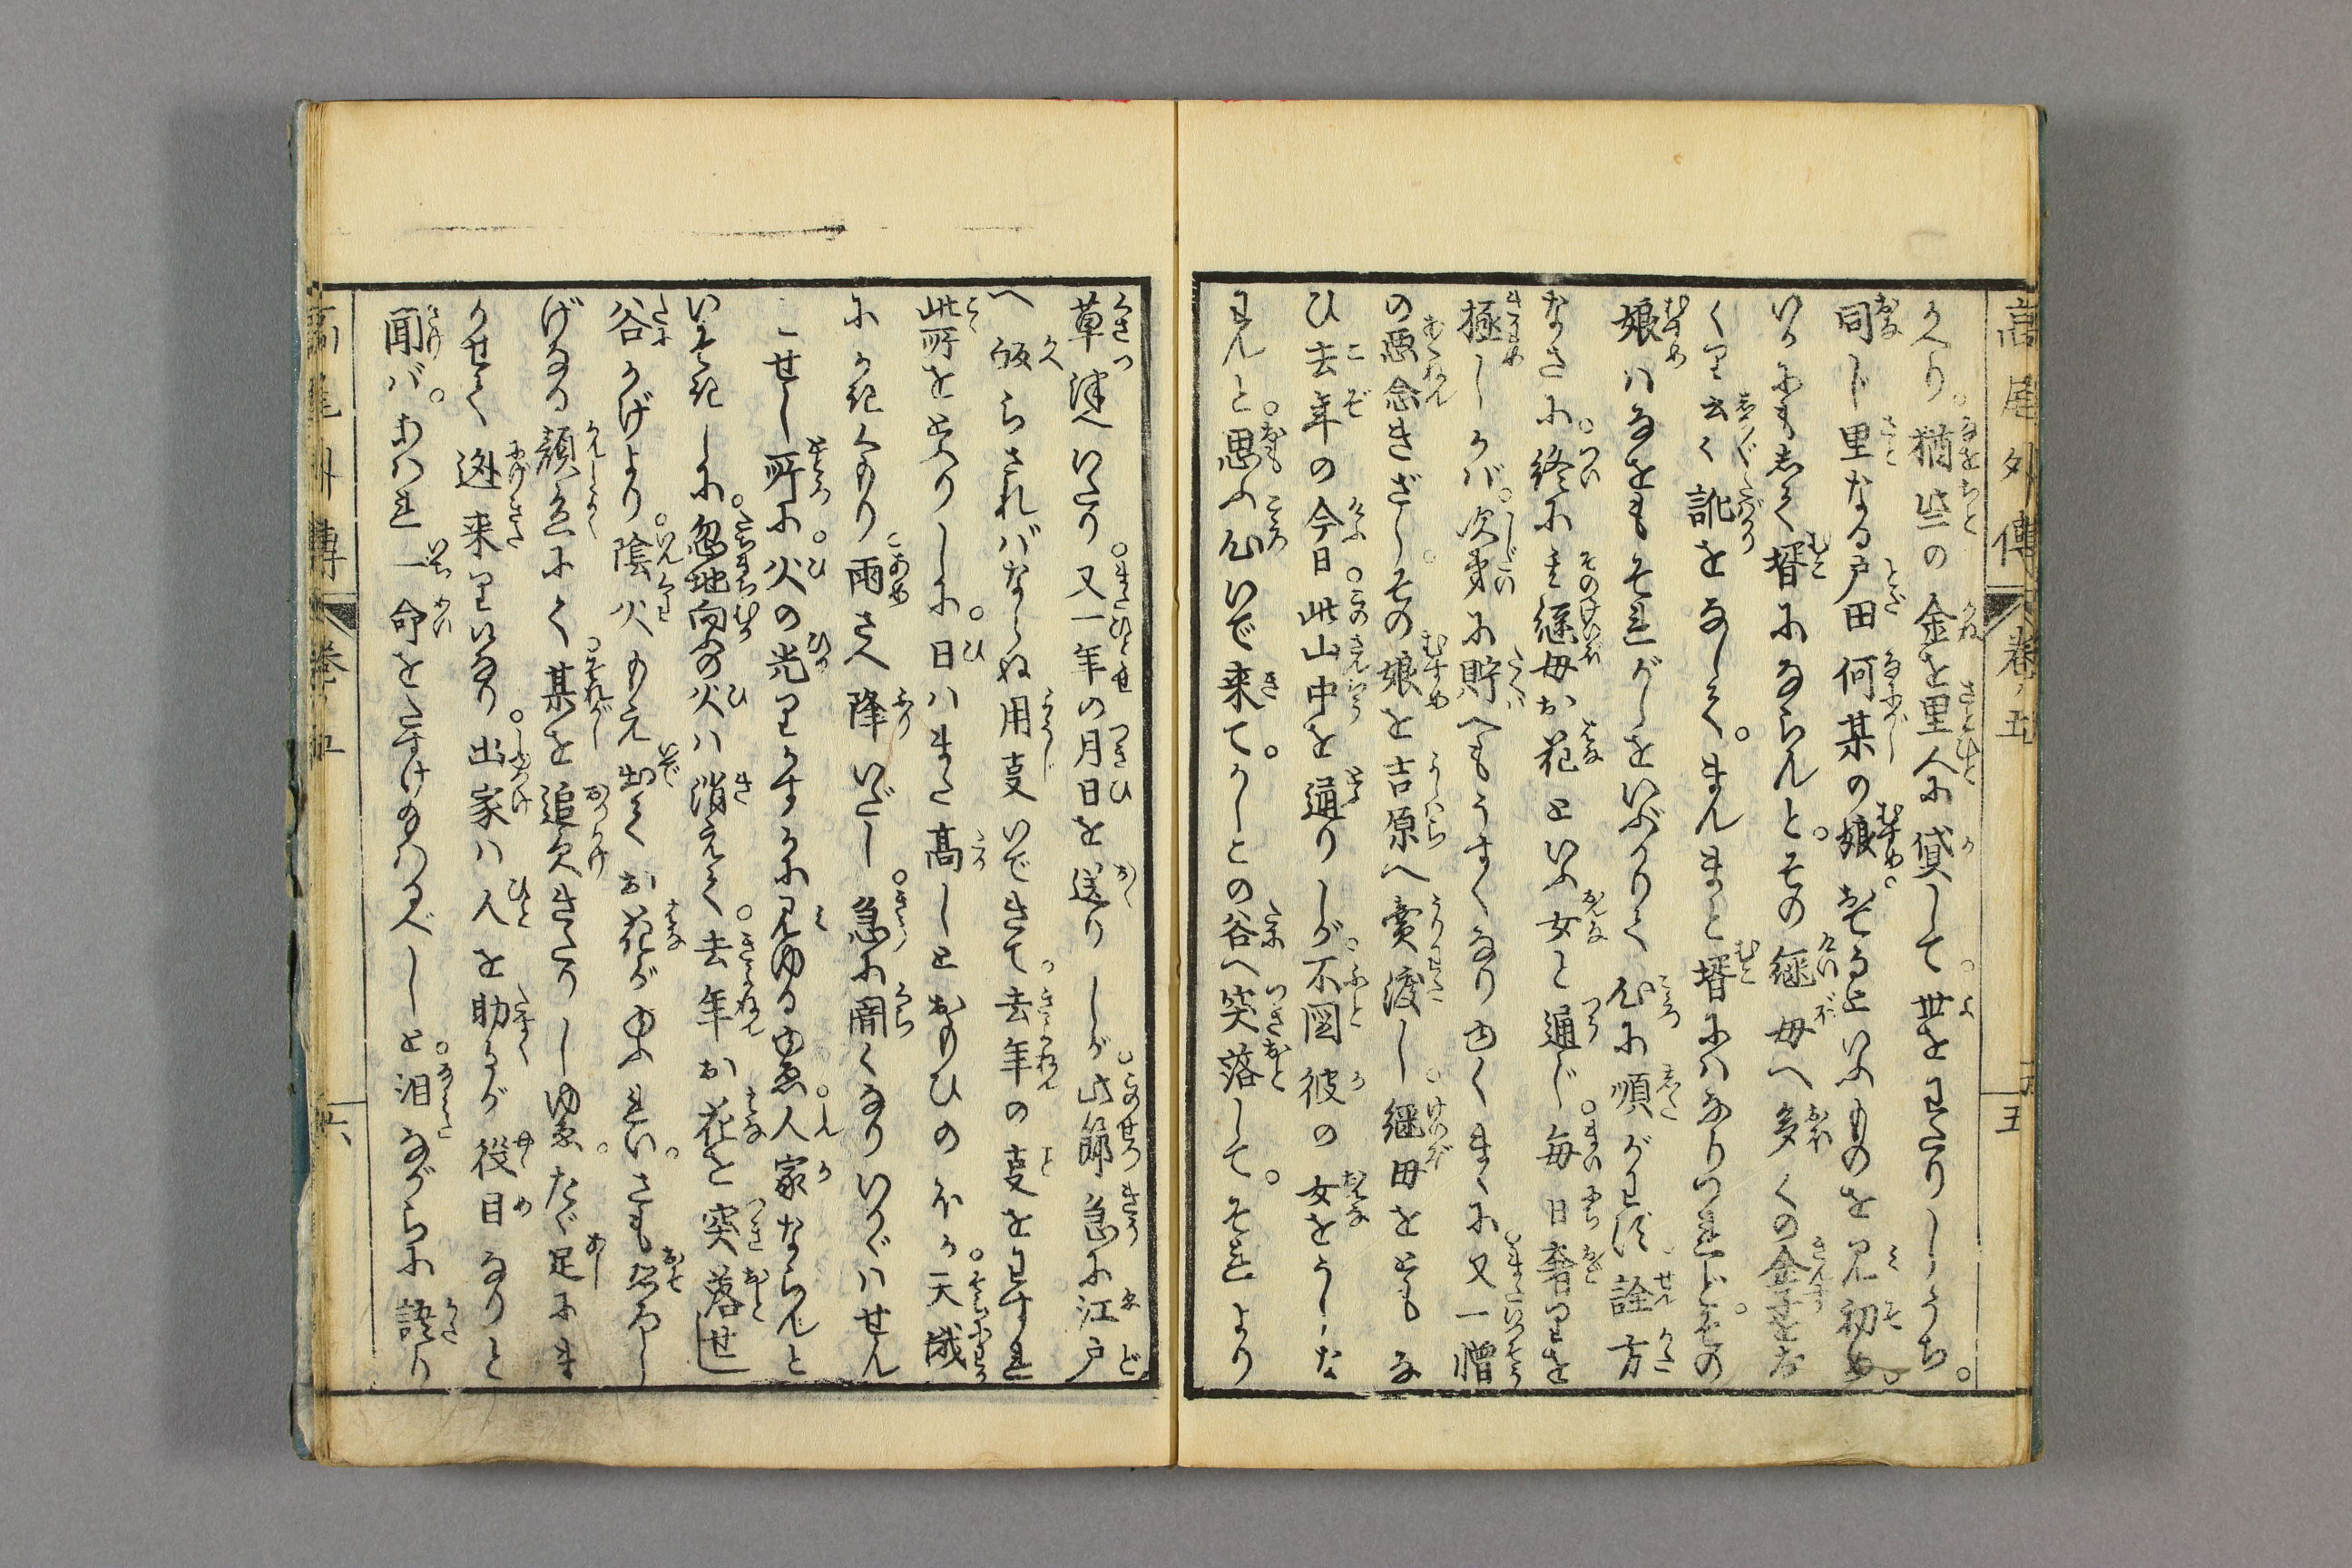 高尾外傳 巻五 五
かへり。猶些の金を里人に貸して。世をわたりしうち。
同じ里なる戸田何某の娘。おそるといふものを見初め。
いかにもして壻にならんと。その継母へ多くの金をお
くり云く訛をなして。まんまと壻にハなりつれど。その
娘ハなをもそれがしをいぶかりて心に順がはず。詮方
なさに。終にその継母お花といふ女と通じ。毎日奢りを
極しかバ。次第に貯へもうすくなりゆくまゝに。又一僧
の悪念きざし。その娘を吉原へ賣渡し。継母をともな
ひ去年の今日。此山中を通りしが。不図彼の女をうしな
わんと。思ふ心いで来て。かしこの谷へ突落して。それより
草津へいたり。又一年の月日を送りしが。此節急に江戸
へ皈らされバならぬ用事いできて。去年の事をわすれ
此所を戻りしに。日ハまだ高しとおもひのほか。天滅
にかきくもり雨さへ降いだし。急に闇くなりいかゞハせん
こせし所に。火の光りかすかに見ゆるゆゑ。人家ならんと
いそぎしに。忽地向ふの火ハ消えて。去年お花を突落せし
谷かげより。陰火もえ出てお花がゆふれい。さも恐ろし
げなる顔色にて。某を追欠きたりしゆゑ。たゞ足にま
かせて迯来りしなり。出家ハ人を助るが役目なりと
聞バ。あハれ一命をたすけ給ハるべしと。泪ながらに語り
高尾外傳 巻五 六